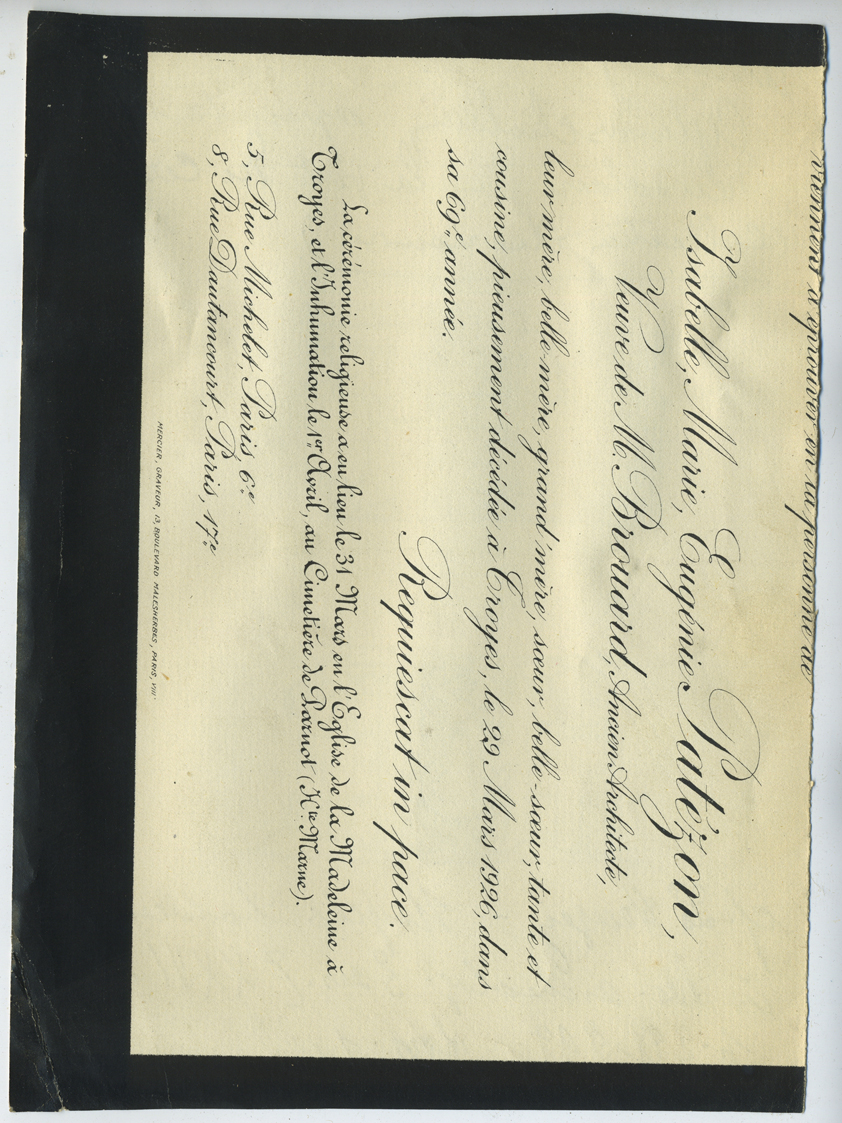 viennent d'éprouver en la personne de
Isabelle, Marie, Eugénie Patézon,
Veuve de M. Brouard, Ancien Architecte,
leur mère, belle-mère, grand'mère, sœur, belle-sœur, tante et
cousine, pieusement décédée à Troyes, le 29 Mars 1926, dans
sa 69e année.
Requiescat in pace.
La cérémonie religieuse a eu lieu le 31 Mars en l'Eglise de la Madeleine à
Troyes, et l'Inhumation le 1er Avril, au Cimetière de Parnot (Hte Marne).
5, Rue Michelet, Paris, 6e
8, Rue Dautancourt, Paris, 17e
MERCIER, GRAVEUR, 13, BOULEVARD MALESHERBES, PARIS, VIIIe